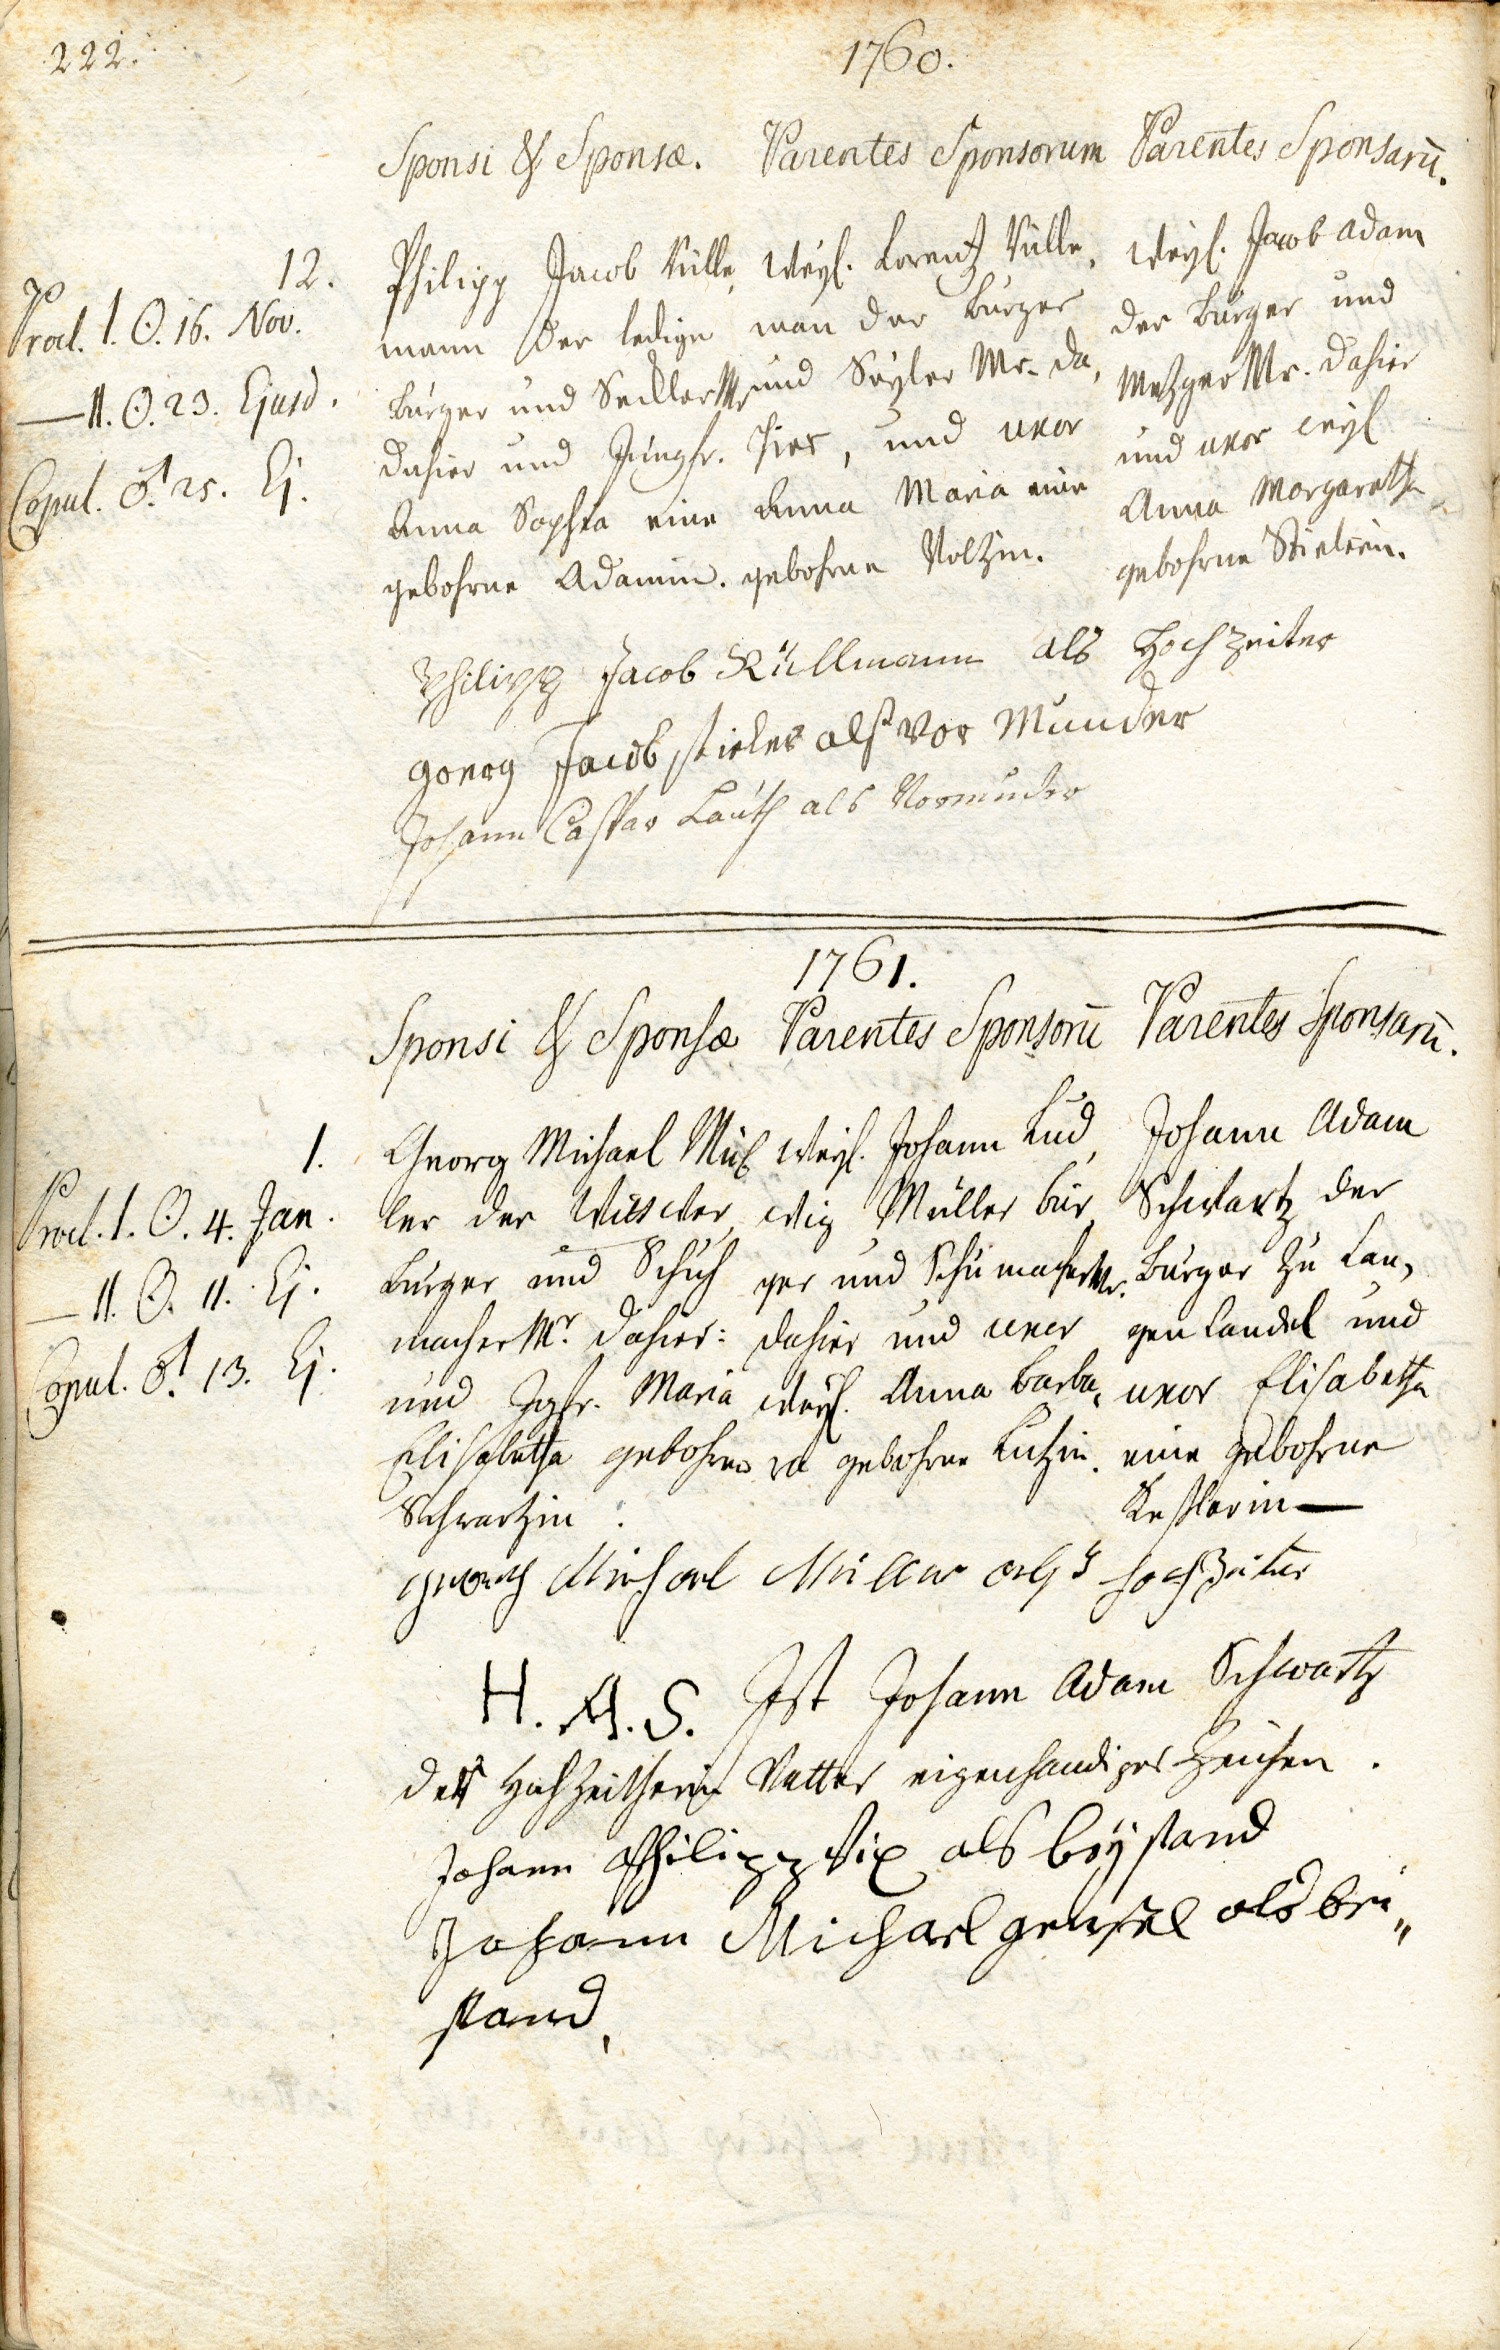 222.
1760.
Sponsi & Sponsæ. Parentes Sponsorum Parentes Sponsarū.
12.
Procl. 1. ☉. 16. Nov.
— 11. ☉. 23. Ejusd.
Copul. ♂. 25. Ej.
Philipp Jacob Rülle,
mann der ledige
Burger und SeillerMr
dahier und Jungfr.
Anna Sophia eine
gebohrne Adamin.
Weyl. Lorentz Rülle,
man der Burger
und Seyler Mr. da,
hier, und uxor
Anna Maria eine
gebohrne Voltzin.
Weyl. Jacob Adam
der Burger und
MetzgerMr. dahier
und uxor weyl
Anna Margaretha
gebohrne Stielein.
Philipp Jacob Rüllmann als Hochzeiter
georg Jacob stieler alß Vor Munder
Johann Caspar Lauth als Vormunder
1761.
Sponsi & Sponsæ Parentes Sponsorū Parentes Sponsarū.
1.
Procl. 1. ☉. 4. Jan.
— 11. ☉. 11. Ej.
Copul. ♂. 13. Ej.
Georg Michael Mül
ler der Wittwer,
Burger und Schuh
macher Mr. dahier:
und Jgfr. Maria
Elisabetha gebohrne
Schwartzin.
Weyl. Johann Lud,
wig Müller bur,
ger und SchumacherMr.
dahier und uxor
weyl. Anna Barba,
ra gebohrne Lutzin.
Johann Adam
Schwartz der
Burger zu Lan,
genCandel und
uxor Elisabetha
eine gebohrne
Keßlerin —
georg Michael Müller alß hochzeiter
H. A. S. Ist Johann Adam Schwartz
der Hochzeitherin Vatter eigenhandiges Zeichen.
Johann Philipp Vix als beystand
Johann Michael gensel als bei„
stand,